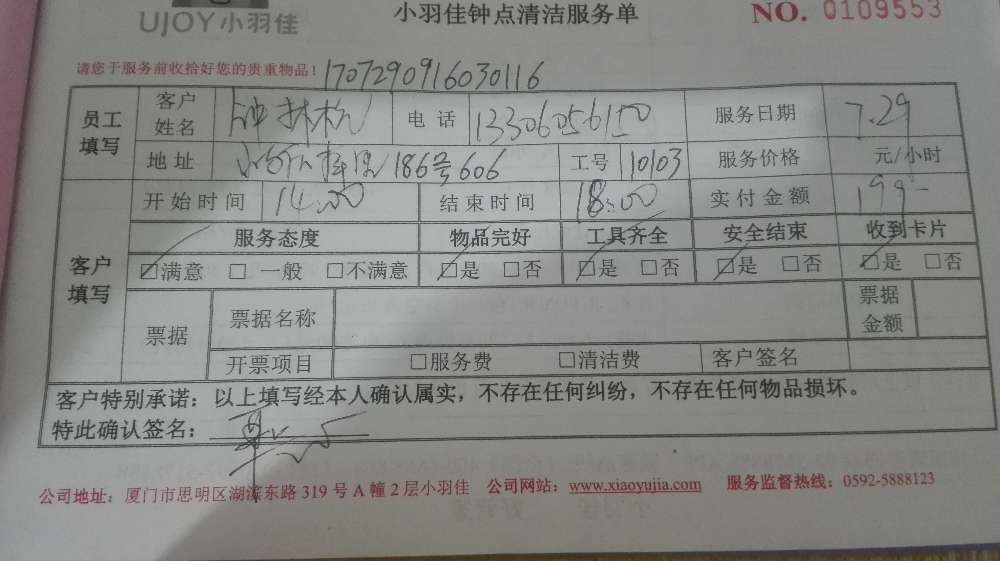 UJOY小羽佳 小羽佳钟点清洁服务单 NO. 0109553
请您于服务前收拾好您的贵重物品！ 1707290916030116
员工填写 客户姓名 钟林杭 电话 13306056150 服务日期 7.29
地址 186号606 工号 10103 服务价格 元/小时
客户填写 开始时间 14:00 结束时间 18:00 实付金额 199-
服务态度 物品完好 工具齐全 安全结束 收到卡片
☑满意 □一般 □不满意 ☑是 □否 ☑是 □否 ☑是 □否 ☑是 □否
票据 票据名称 票据金额
开票项目 □服务费 □清洁费 客户签名
客户特别承诺：以上填写经本人确认属实，不存在任何纠纷，不存在任何物品损坏。
特此确认签名：
公司地址：厦门市思明区湖滨东路 319 号 A 幢 2 层小羽佳 公司网站：www.xiaoyujia.com 服务监督热线：0592-5888123